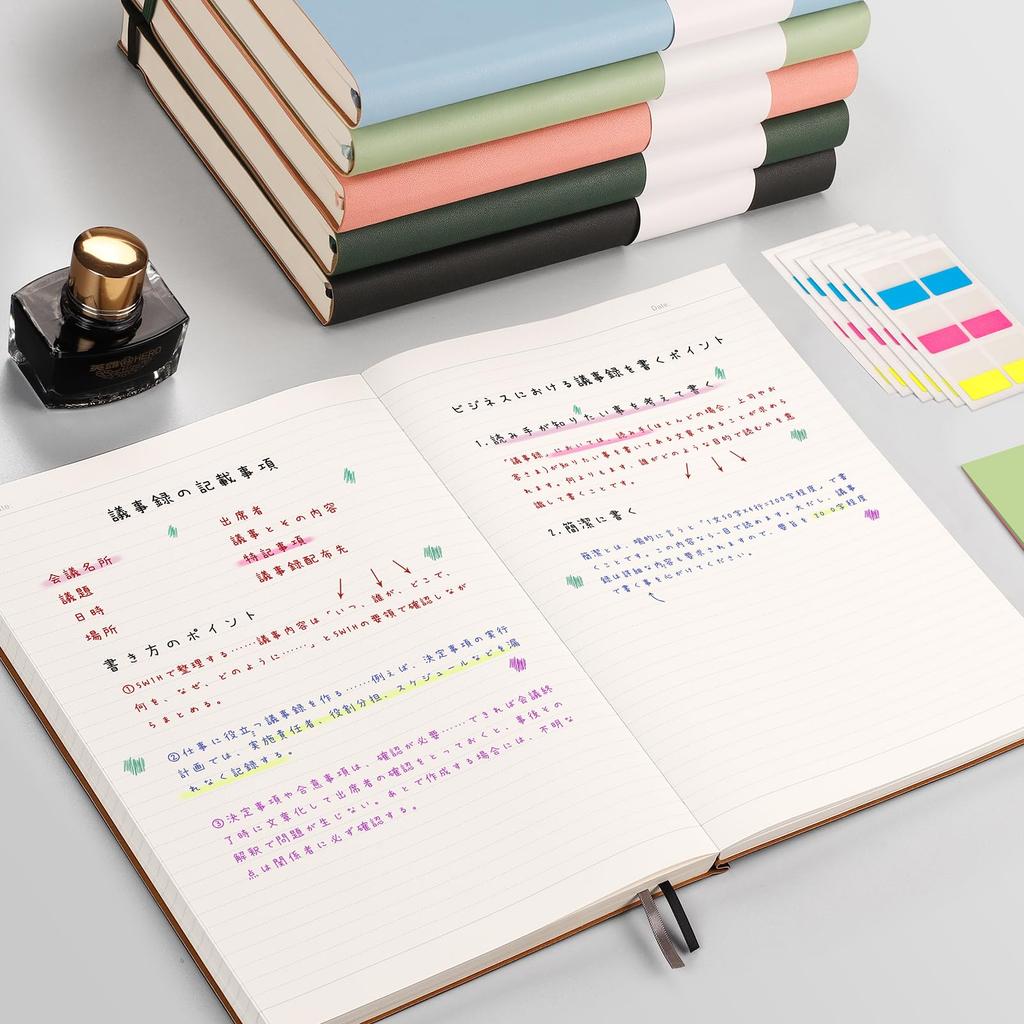 英雄 HERO
議事録の記載事項
会議名所
議題
日時
場所
出席者
議事とその内容
特記事項
議事録配布先
書き方のポイント
①5W1Hで整理する……議事内容は「いつ、誰が、どこで、
何を、なぜ、どのように……」と5W1Hの要領で確認しなが
らまとめる。
②仕事に役立つ議事録を作る……例えば、決定事項の実行
計画では、実施責任者、役割分担、スケジュールなどを漏
れなく記録する。
③決定事項や合意事項は、確認が必要……できれば会議終
了時に文章化して出席者の確認をとっておくと、事後その
解釈で問題が生じない。あとで作成する場合には、不明な
点は関係者に必ず確認する。
Date.
ビジネスにおける議事録を書くポイント
1.読み手が知りたい事を考えて書く
「議事録」においては、読み手(ほとんどの場合、上司やお
客さま)が知りたい事を書いてある文章であることが求めら
れます。何よりもまず、誰がどのような目的で読むかを意
識して書くことです。
2.簡潔に書く
簡潔とは、端的に言うと「1文50字X4行=200字程度」で書
くことです。この内容なら一目で読めます。ただし、議事
録は詳細な内容も要求されますので、要旨を200字程度
で書く事を心がけてください。